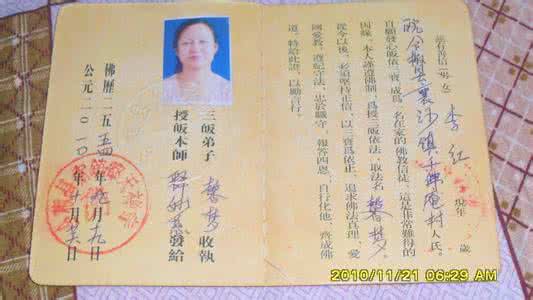 茲有善信(男、女)李红 現年 歲
皖 县襄沙镇 村人氏。
自願發心皈依三寶，成爲一名在家的佛教信徒，這是非常難得的
因緣。本人謹遵佛制，爲授三皈依法，取法名馨梦。
從今以後，必須堅持正信，以三寶爲依止，追求佛法真理，愛
國愛教，遵紀守法，忠於職守，報答四恩，自行化他，齊成佛
道。特給此證，以勵言行。
三皈弟子 馨梦 收執
授皈本師 發給
佛歷二五五四年九月十九日
公元二〇一〇年十月 日
2010/11/21 06:29 AM